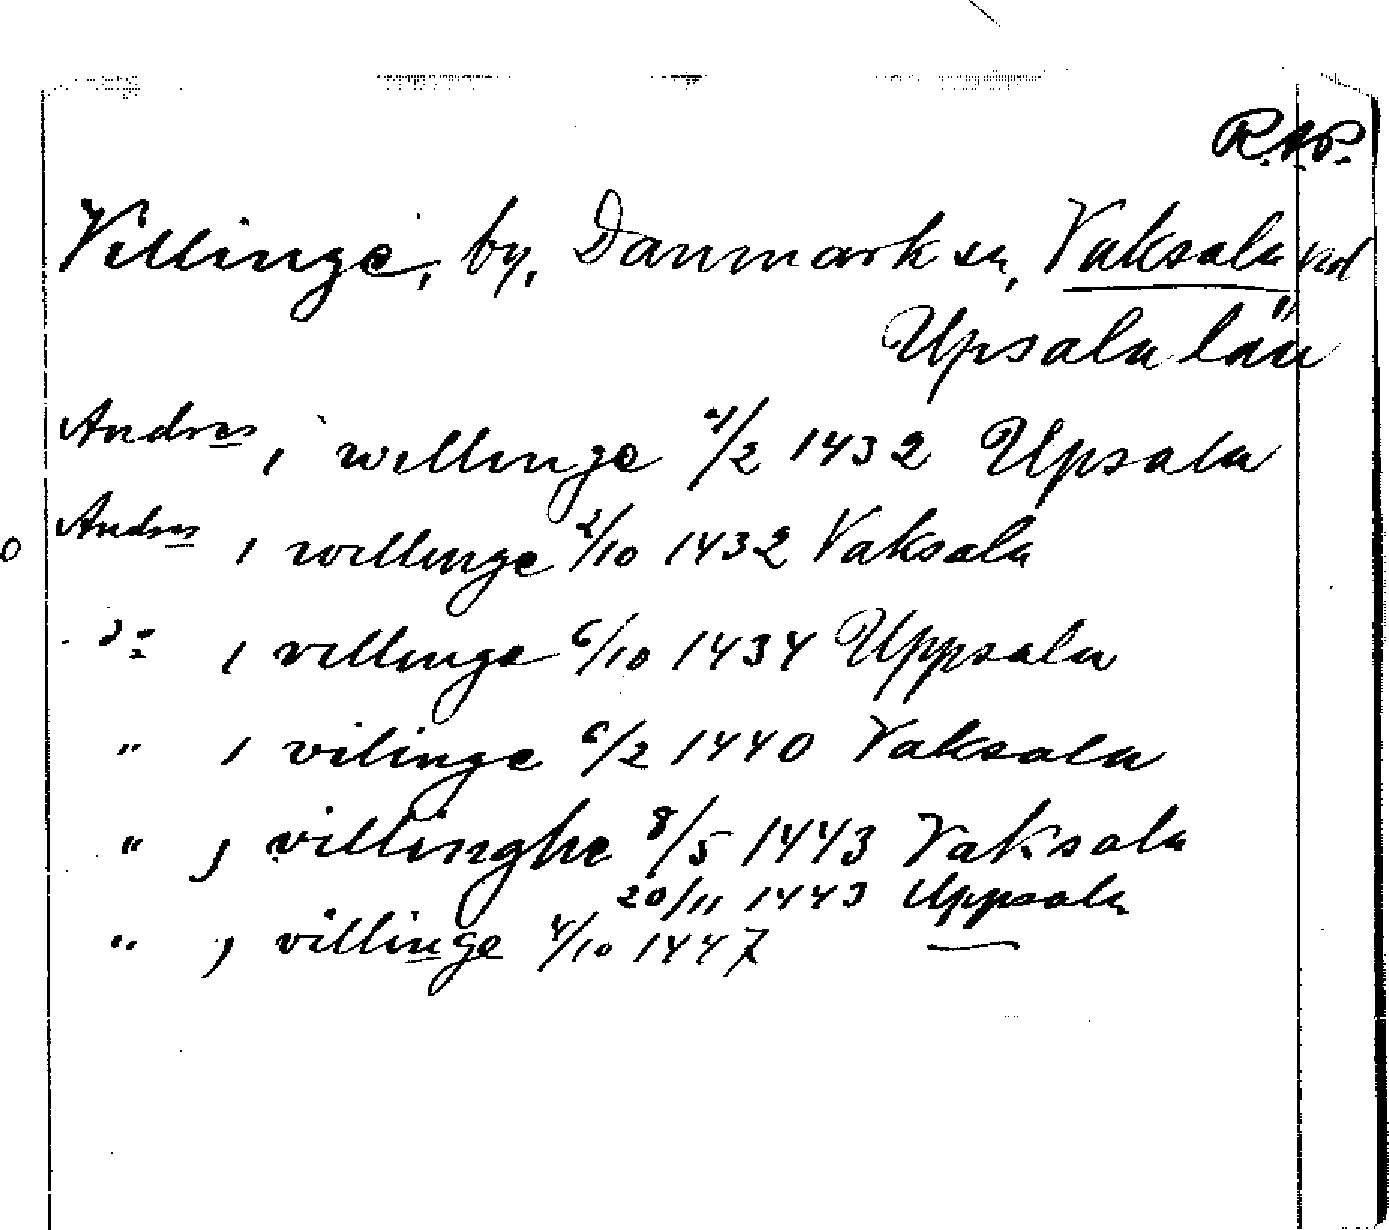 R.A.P.
Villinge, by, Danmark sn, Vaksala hd
Upsala län
Andreas i willinge 4/2 1432 Upsala
Andreas i willinge 2/10 1432 Vaksala
D:o i villinge 6/10 1434 Uppsala
" i vilinge 6/2 1440 Vaksala
" j villinghe 8/5 1443 Vaksala
20/11 1443 Uppsala
" j villinge 4/10 1447 —